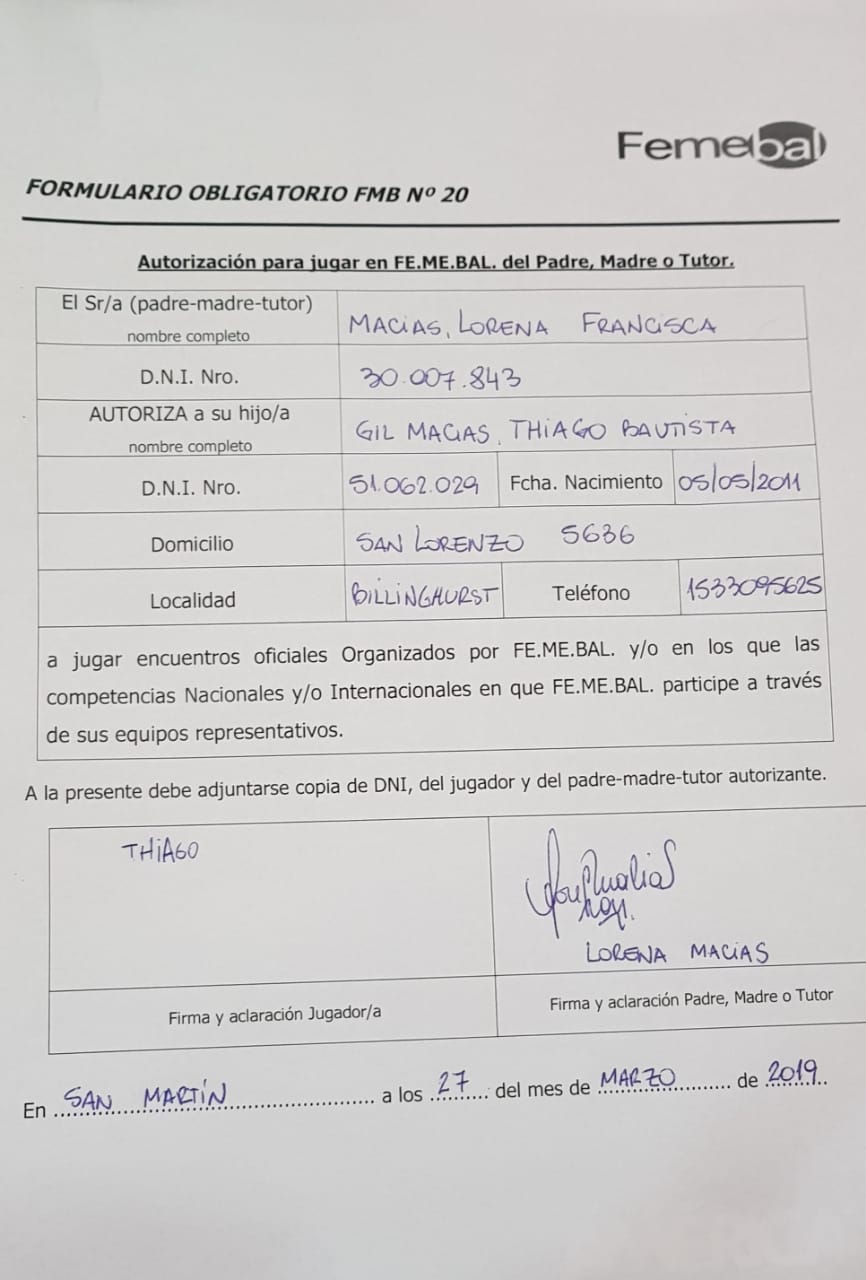 Femebal
FORMULARIO OBLIGATORIO FMB Nº 20
Autorización para jugar en FE.ME.BAL. del Padre, Madre o Tutor.
El Sr/a (padre-madre-tutor)
nombre completo
MACIAS, LORENA FRANCISCA
D.N.I. Nro.
30.007.843
AUTORIZA a su hijo/a
nombre completo
GIL MACIAS, THIAGO BAUTISTA
D.N.I. Nro.
51.062.029
Fcha. Nacimiento
05/05/2011
Domicilio
SAN LORENZO 5636
Localidad
BILLINGHURST
Teléfono
1533095625
a jugar encuentros oficiales Organizados por FE.ME.BAL. y/o en los que las
competencias Nacionales y/o Internacionales en que FE.ME.BAL. participe a través
de sus equipos representativos.
A la presente debe adjuntarse copia de DNI, del jugador y del padre-madre-tutor autorizante.
THIAGO
LORENA MACIAS
Firma y aclaración Jugador/a
Firma y aclaración Padre, Madre o Tutor
En SAN MARTÍN a los 27 del mes de MARZO de 2019